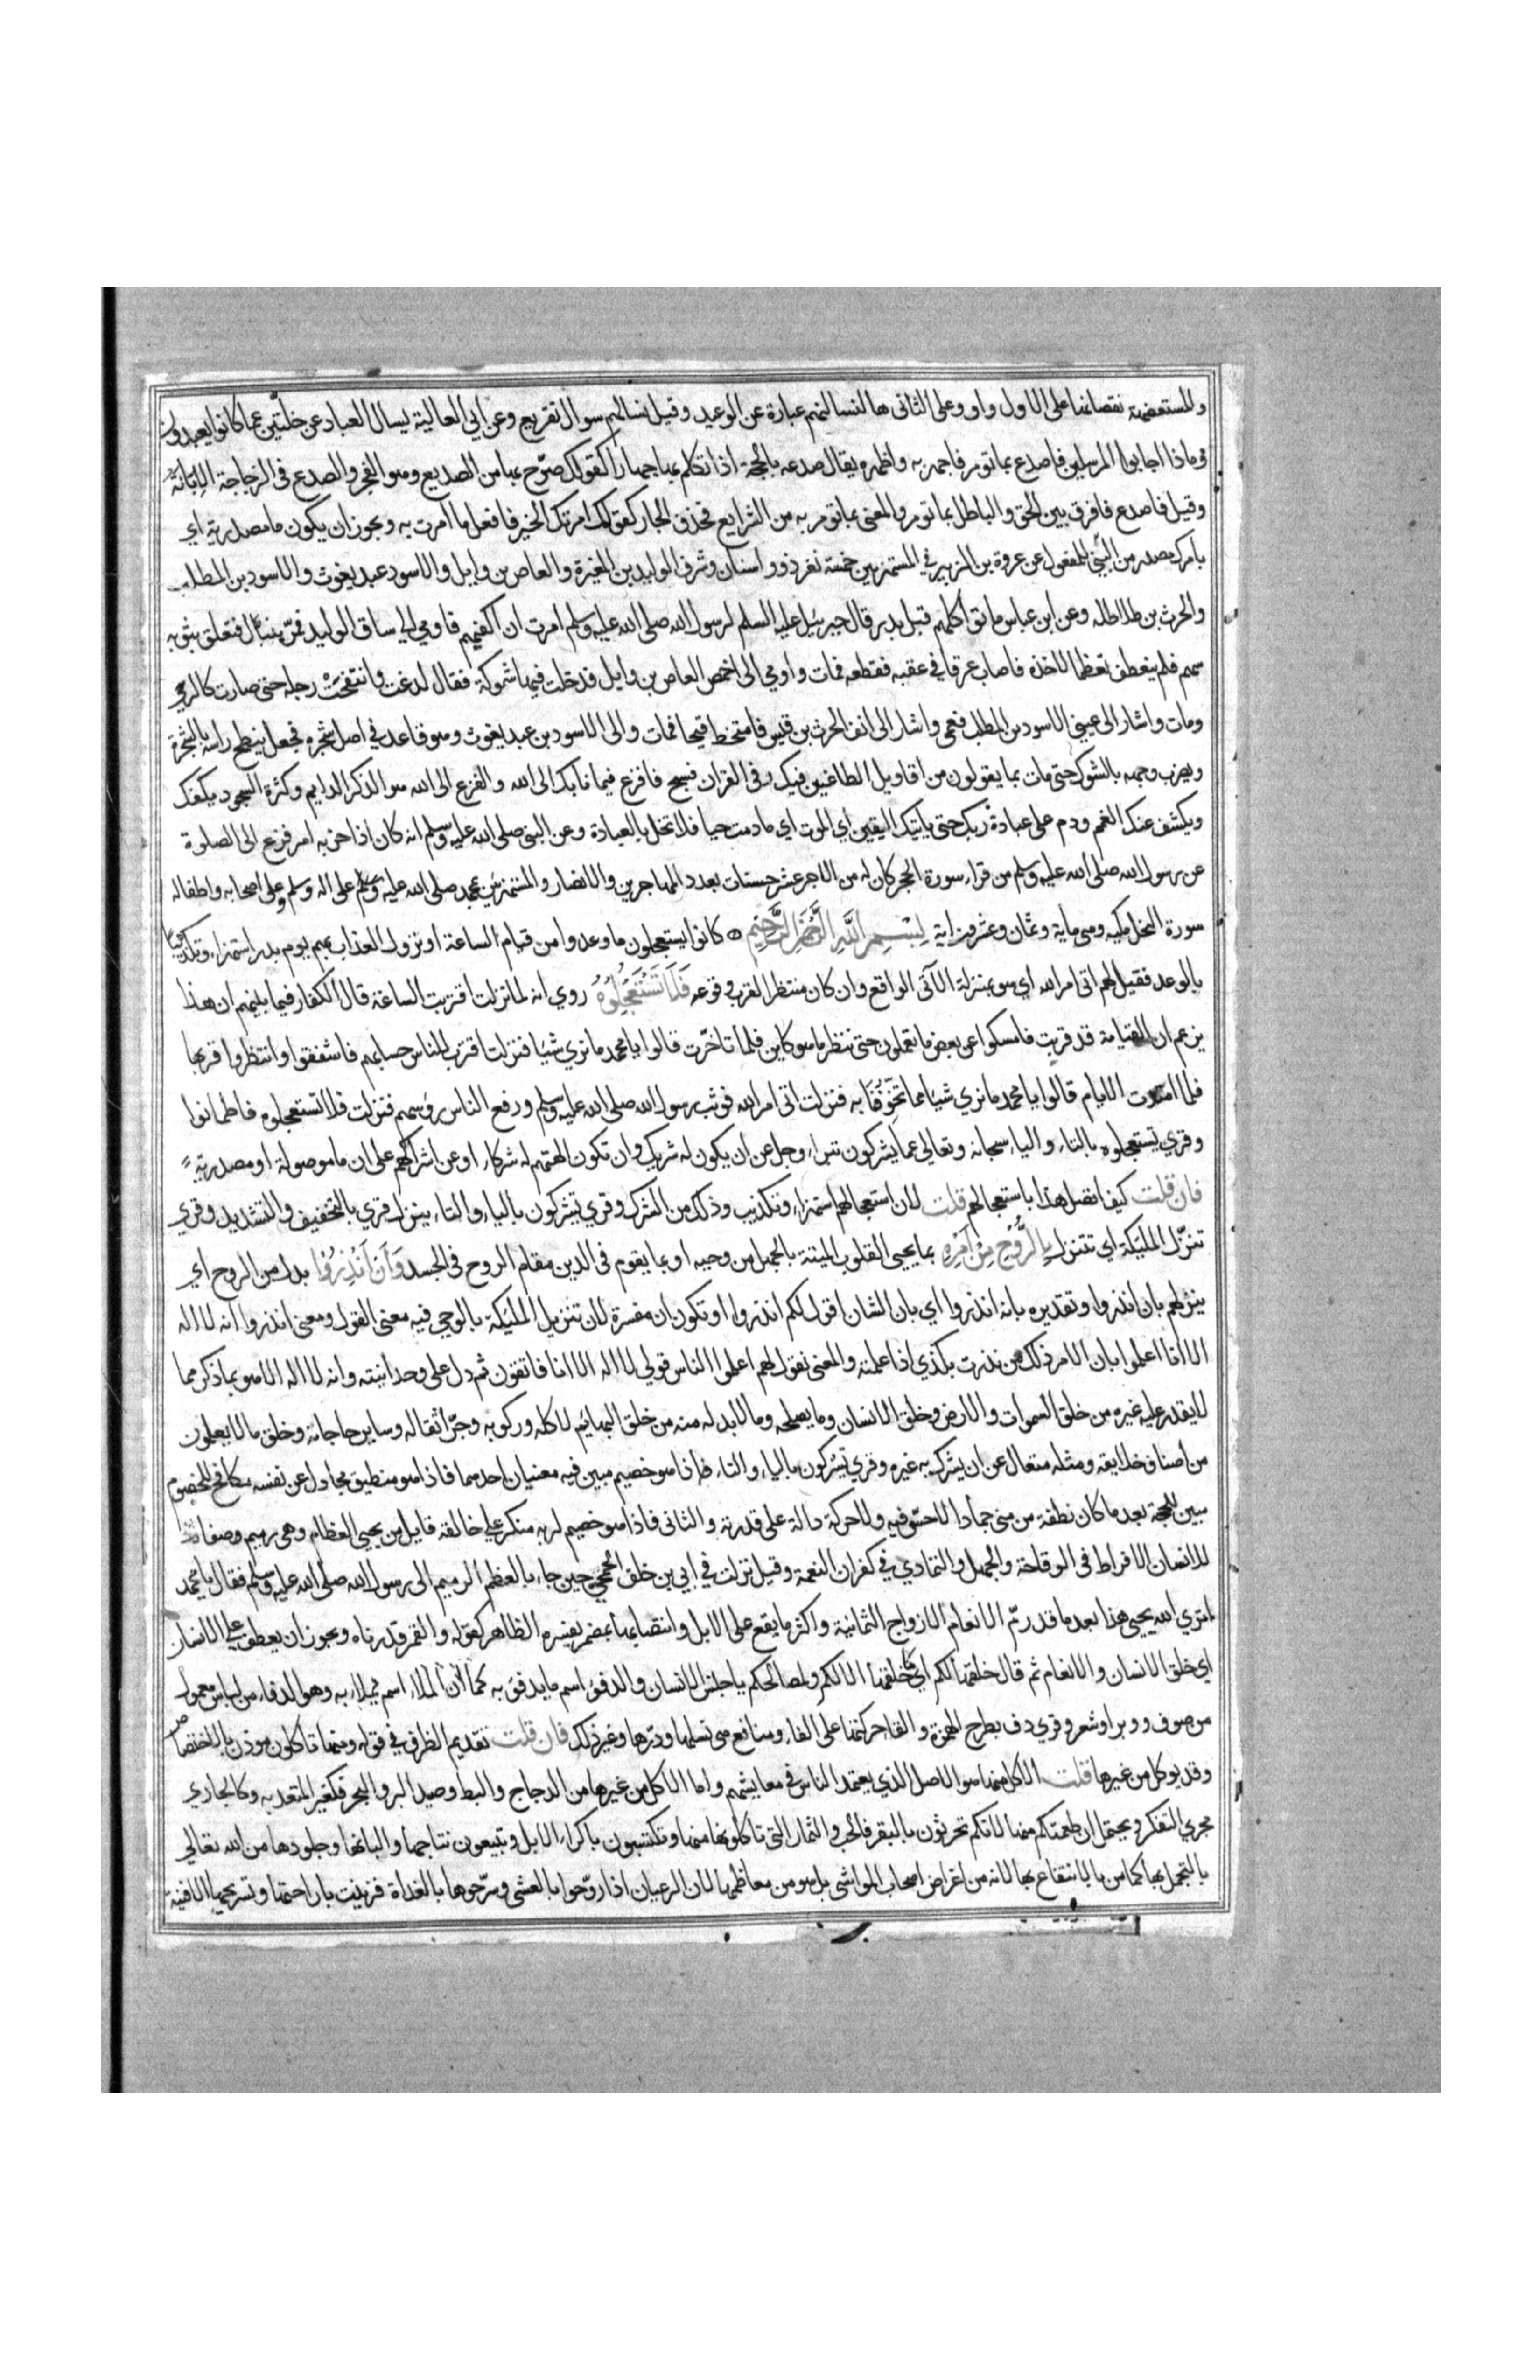 والمستعضهة نقصانها على الاول واو وعلى الثانى ها لنسالنهم عبارة عن الوعيد وقيل نسالهم سوال تقريع وعن ابي العالية يسال العباد عن خلتين عما كانوا يعبدون
وماذا اجابوا المرسلين فاصدع بما تومر فاجهر به واظهره يقال صدع بالحجة اذا تكلم بها جهارا كقولك صرّح بها من الصديع وهو الفجر والصدع فى الزجاجة الابانة
وقيل فاصدع فافرق بين الحق والباطل بما تومر والمعنى بما تومر به من الشرايع فحذف الجار كقولك امرتك الخير فافعل ما امرت به ويجوز ان يكون ما مصدرية اي
بامرك مصدر من المبني للمفعول عن عروة بن الزبير في المستهزيين خمسة نفر ذوو اسنان وشرف الوليد بن المغيرة والعاص بن وايل والاسود عبد يغوث والاسود بن المطلب
والحرث بن طلاطلة وعن ابن عباس ماتوا كلهم قبل بدر قال جبرئيل عليه السلم لرسول الله صلى الله عليه وسلم امرت ان اكفيكهم فاومي الي ساق الوليد فمرّ بنبال فتعلق بثوبه
سهم فلم ينعطف تعظما لاخذه فاصاب عرقا في عقبه فقطعه فمات واومي الى اخمص العاص بن وايل فدخلت فيها شوكة فقال لدغت وانتفخت رجله حتى صارت كالرحي
ومات واشار الى عيني الاسود بن المطلب فعمي واشار الى انف الحرث بن قيس فامتخط قيحا فمات والى الاسود بن عبد يغوث وهو قاعد في اصل شجرة فجعل ينطح راسه بالشجرة
ويضرب وجهه بالشوك حتى مات بما يقولون من اقاويل الطاغين فيك وفى القران فسبح فافزع فيما نابك الى الله والفزع الى الله هو الذكر الدايم وكثرة السجود يكفك
ويكشف عنك الغم ودم على عبادة ربك حتى ياتيك اليقين اي الموت اي ما دمت حيا فلا تخل بالعبادة وعن النبي صلى الله عليه وسلم انه كان اذا حزبه امر فزع الى الصلوة
عن رسول الله صلى الله عليه وسلم من قراء سورة الحجر كان له من الاجر عشر حسنات بعدد المهاجرين والانصار والمستهزئين بمحمد صلى الله عليه وسلم وعلى اله وسلم وعلى اصحابه واطفاله
سورة النحل مكية وهى ماية وثمان وعشرون اية بسم الله الرحمن الرحيم كانوا يستعجلون ما وعدوا من قيام الساعة او نزول العذاب بهم يوم بدر استهزاء وتكذيبا
بالوعد فقيل لهم اتى امر الله اي هو بمنزلة الآتى الواقع وان كان منتظرا لقرب وقوعه فلا تستعجلوه روي انه لما نزلت اقتربت الساعة قال الكفار فيما بينهم ان هذا
يزعم ان القيامة قد قربت فامسكوا عن بعض ما تعملون حتى ننظر ما هو كاين فلما تاخرت قالوا يا محمد ما نري شيا فنزلت اقترب للناس حسابهم فاشفقوا وانتظروا قربها
فلما امتدت الايام قالوا يا محمد ما نري شيا مما تخوّفنا به فنزلت اتى امر الله فوثب رسول الله صلى الله عليه وسلم ورفع الناس رؤسهم فنزلت فلا تستعجلوه فاطمانوا
وقري تستعجلوه بالتاء والياء سبحانه وتعالى عما يشركون تبراء وجل عن ان يكون له شريك وان تكون الهتهم له شركاء او عن اشراكهم على ان ما موصولة او مصدرية
فان قلت كيف اتصل هذا باستعجالهم قلت لان استعجالهم استهزاء وتكذيب وذلك من الشرك وقري تشركون بالياء والتاء ينزل قري بالتخفيف والتشديد وقري
تنزّل المليكة اي تتنزل بالروح من امره بما يحيي القلوب الميتة بالجهل من وحيه او بما يقوم فى الدين مقام الروح فى الجسد وان انذروا بدل من الروح اي
ينزلهم بان انذروا وتقديره بانه انذروا اي بان الشان اقول لكم انذروا او تكون ان مفسرة لان تنزيل المليكة بالوحي فيه معنى القول ومعنى انذروا انه لا اله
الا انا اعلموا بان الامر ذلك من نذرت بكذي اذا علمته والمعنى نقول لهم اعلموا الناس قولي لا اله الا انا فاتقون ثم دل على وحدانيته وانه لا اله الا هو بما ذكر مما
لا يقدر عليه غيره من خلق السموات والارض وخلق الانسان وما يصلحه وما لا بد له منه من خلق البهائم لاكله وركوبه وجرّ اثقاله وساير حاجاته وخلق ما لا يعلمون
من اصناف خلايقه ومثله متعال عن ان يشرك به غيره وقري تشركون بالياء والتاء فاذا هو خصيم مبين فيه معنيان احدهما فاذا هو منطيق مجادل عن نفسه مكافح للخصوم
مبين للحجة بعد ما كان نطفة من مني جمادا لا حسّ فيه ولا حركة دالة على قدرته والثانى فاذا هو خصيم لربه منكر على خالقه قايل من يحيي العظام وهى رميم وصفا
للانسان الافراط فى الوقاحة والجهل والتمادي في كفران النعمة وقيل نزلت في ابي بن خلف الجمحي حين جاء بالعظم الرميم الى رسول الله صلى الله عليه وسلم فقال يا محمد
اتري الله يحيي هذا بعد ما قد رمّ الانعام الازواج الثمانية واكثر ما يقع على الابل وانتصابها بمضمر يفسره الظاهر كقوله والقمر قدرناه ويجوز ان يعطف على الانسان
اي خلق الانسان والانعام ثم قال خلقها لكم اي ما خلقها الا لكم ولمصالحكم يا جنس الانسان والدفؤ اسم ما يدفؤ به كما ان الملاء اسم يملاء به وهو الدفاء من لباس معمول
من صوف ووبر او شعر وقري دف بطرح الهمزة والقا حركتها على الفاء ومنافع هى نسلها ودرّها وغير ذلك فان قلت تقديم الظرف في قوله ومنها تاكلون موذن بالاختصاص
وقد يوكل من غيرها قلت الاكل منها هو الاصل الذي يعتمد الناس في معايشهم واما الاكل من غيرها من الدجاج والبط وصيد البر والبحر فكغير المتعد به وكالجاري
مجري التفكه ويحتمل ان طعمتكم منها لانكم تحرثون بالبقر فالحب والثمار التى تاكلونها منها وتكتسبون باكراء الابل وتبيعون نتاجها والبانها وجلودها من الله تعالي
بالتجمل بها كما من بالانتفاع بها لانه من اغراض اصحاب المواشى بل هو من معاظمها لان الرعيان اذا روّحوا بالعشى وسرّحوها بالغداة فزينت باراحتها وتسريحها الافنية